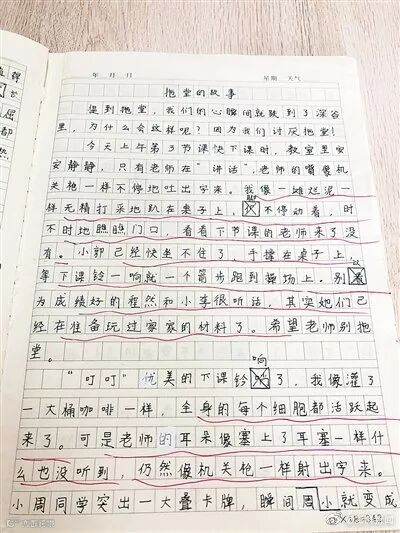 年 月 日 星期 天气
拖堂的故事
提到拖堂，我们的心瞬间就跌到了深谷
里，为什么会这样呢？因为我们讨厌拖堂！
今天上午第3节课快下课时，教室里安
安静静，只有老师在“讲话”，老师的嘴像机
关枪一样不停地吐出字来。我像一滩烂泥一
样无精打采地趴在桌子上，不停动着，时
不时地瞧瞧门口，看看下节课的老师来了没
有。小郭已经快坐不住了，手撑在桌子上，
等下课铃一响就一个箭步跑到操场上。别以
为成绩好的程然和小李很听话，其实她们已
经在准备玩过家家的材料了。希望老师别拖
堂。
“叮叮”优美的下课铃响了，我像灌了
一大桶咖啡一样，全身的每个细胞都活跃起
来了。可是老师的耳朵像塞上了耳塞一样什
么也没听到，仍然像机关枪一样射出字来。
小周同学突出一大叠卡牌，瞬间周小就变成